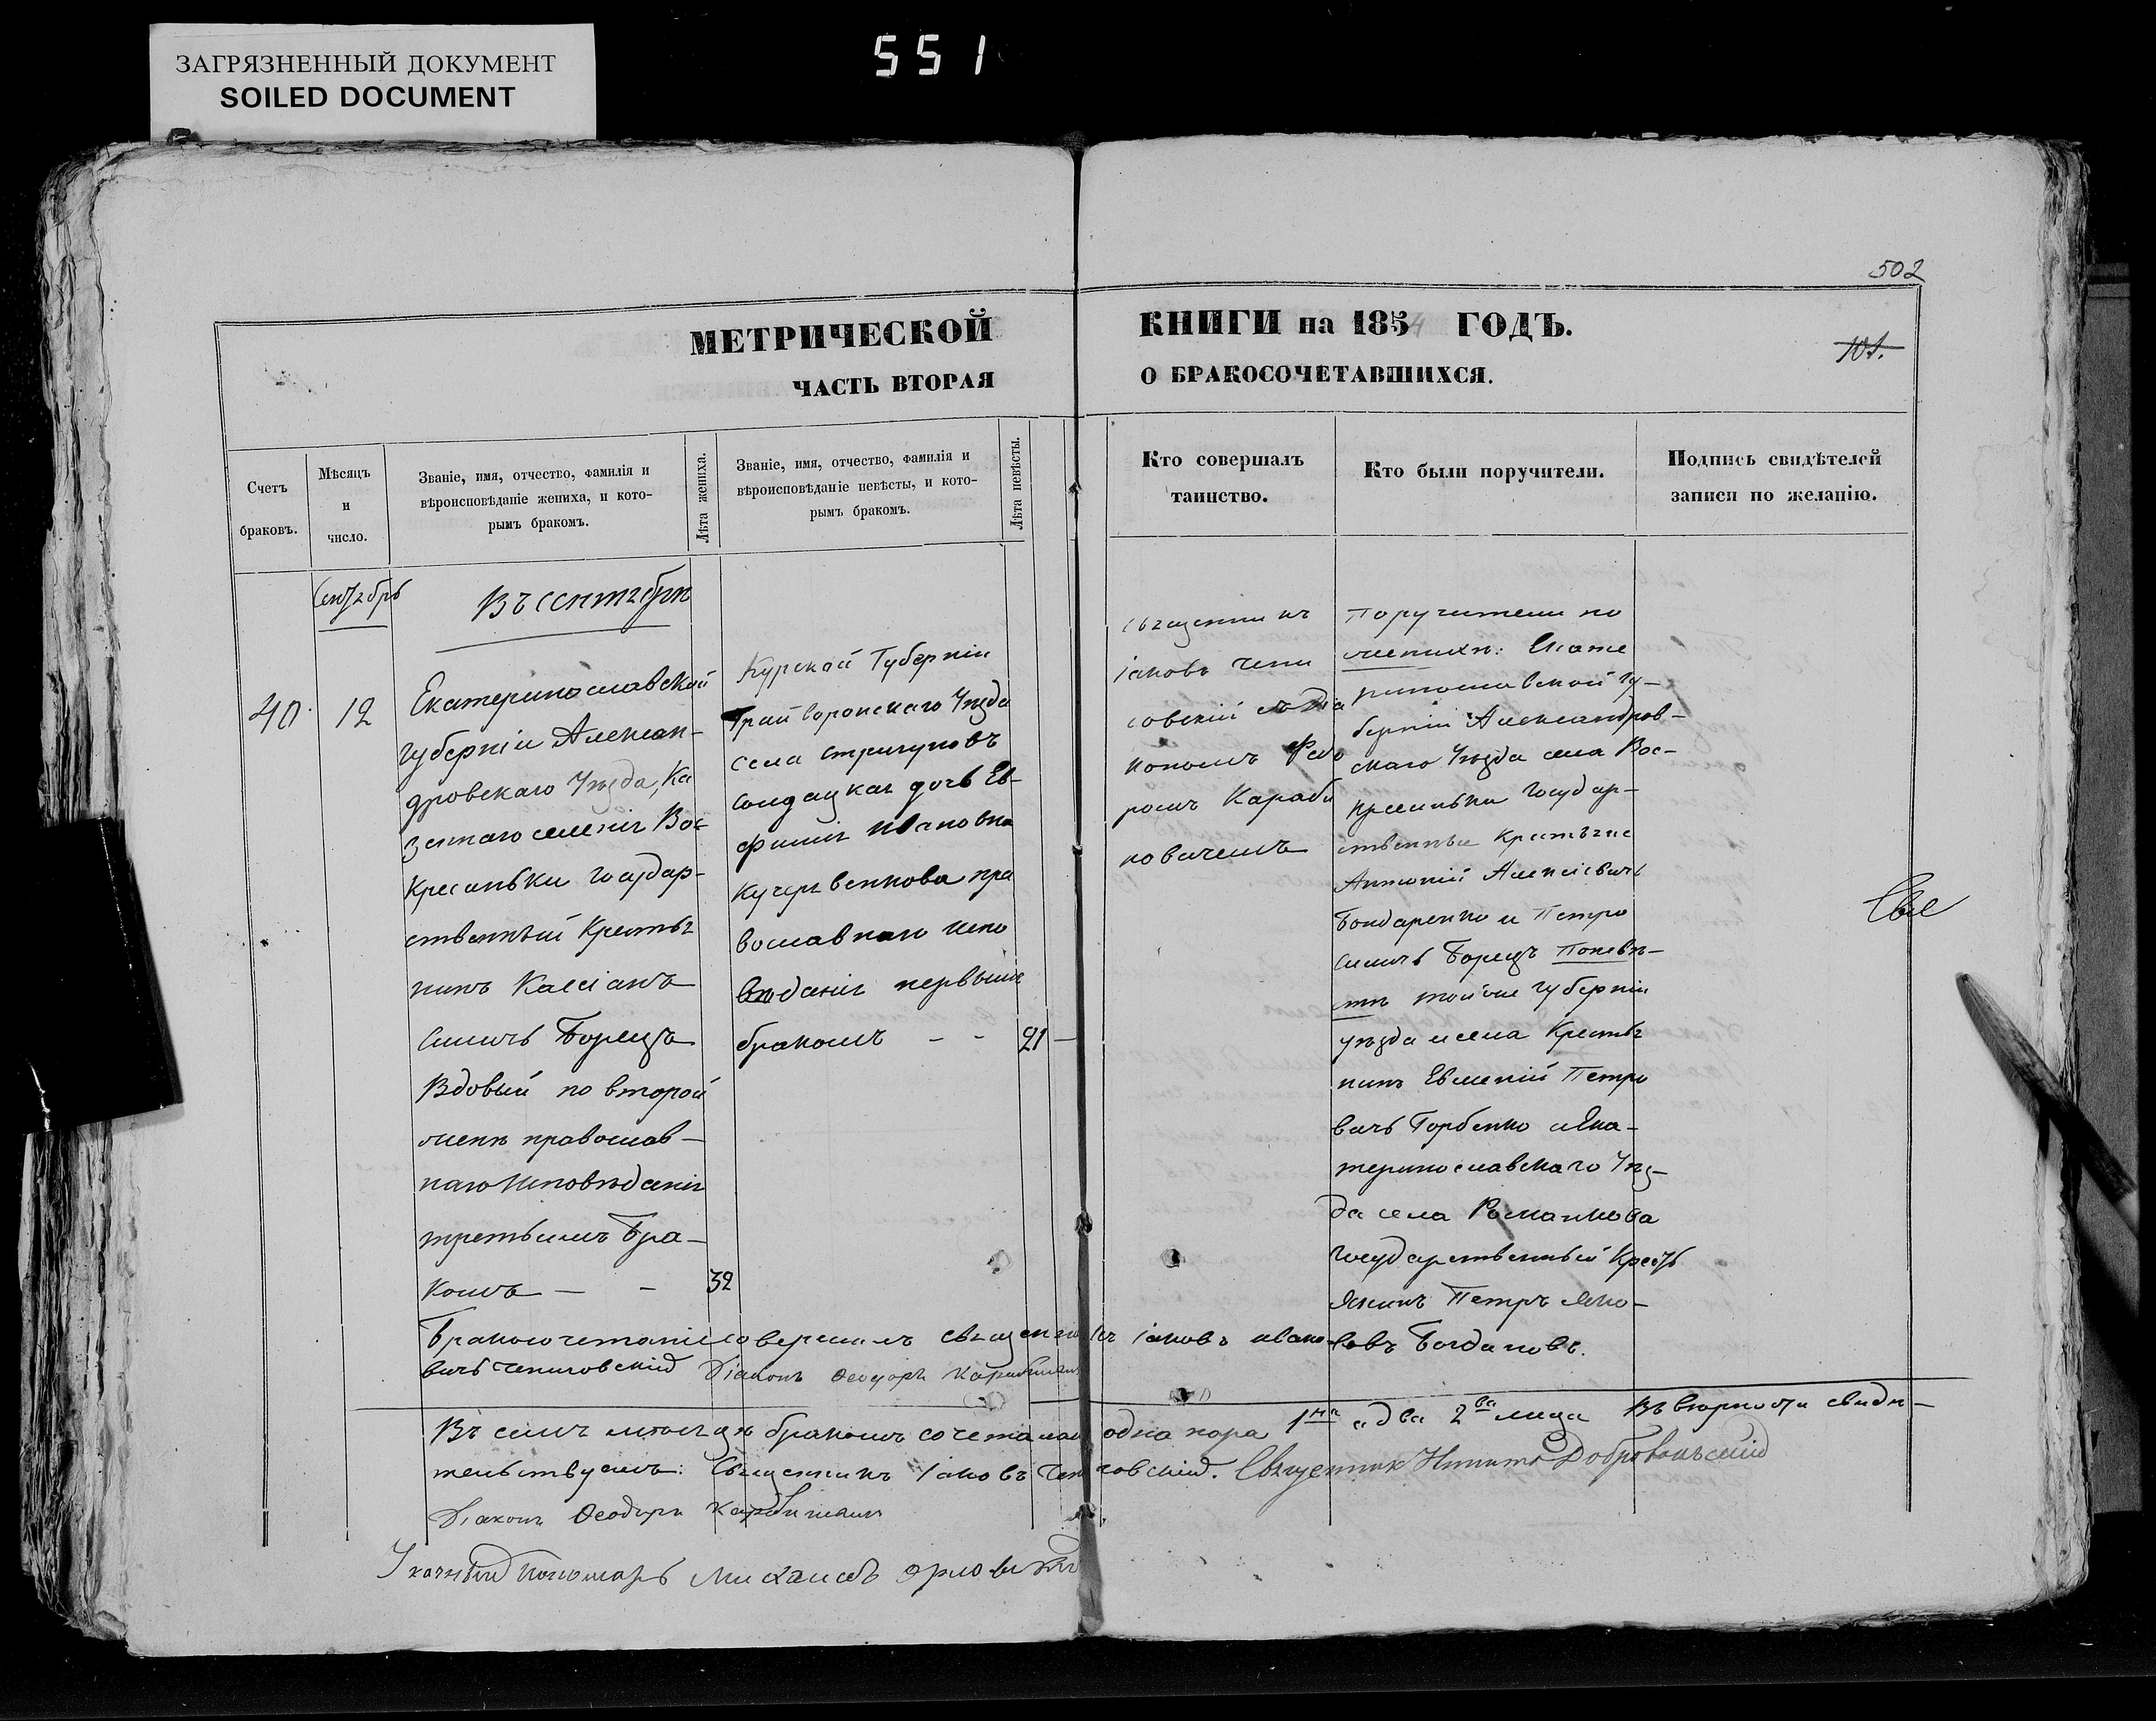 ЗАГРЯЗНЕННЫЙ ДОКУМЕНТ
SOILED DOCUMENT
551
502
МЕТРИЧЕСКОЙ КНИГИ на 1854 ГОДЪ.
101.
ЧАСТЬ ВТОРАЯ О БРАКОСОЧЕТАВШИХСЯ.
Счетъ
браковъ.
Мѣсяцъ
и
число.
Званіе, имя, отчество, фамилія и
вѣроисповѣданіе жениха, и кото-
рымъ бракомъ.
Лѣта жениха.
Званіе, имя, отчество, фамилія и
вѣроисповѣданіе невѣсты, и кото-
рымъ бракомъ.
Лѣта невѣсты.
Кто совершалъ
таинство.
Кто были поручители.
Подпись свидѣтелей
записи по желанію.
Сентябрь
Въ сентябрѣ
40
12
Екатеринославской
губерніи Алексан-
дровскаго Уѣзда, Ка
зеннаго селенія Вос
кресеньки государ-
ственный Крестья
нинъ Кассіанъ
Симичъ Борецъ
Вдовый по второй
женѣ православ-
наго Исповѣданія
третьимъ Бра-
комъ - - 32
Курской Губерніи
Грайворонскаго Уѣзда
села Стригуновъ
Солдацкая дочь Ев-
фимія Ивановна
Кучерявенкова пра
вославнаго испо
вѣданія первымъ
бракомъ - - 21 -
Священникъ
Іаковъ Чепи
говскій съ Діа
кономъ Фео
ромъ Караби
новичемъ
Поручители по
женихѣ: Екате
ринославской гу-
берніи Александров-
скаго Уѣзда села Вос-
кресеньки Государ-
ственные Крестьяне
Антоній Алексіевичъ
Бондаренко и Петро
Симичъ Борецъ По невѣ-
стѣ той же губерніи
уѣзда и села Крестья
нинъ Евменій Петро
вичъ Горбенко и Ека-
теринославскаго Уѣз-
да села Романкова
Государственный Кресть
янинъ Петръ Яко-
влевъ Богдановъ.
Бракосочетаніе совершилъ священникъ Іаковъ Ивано-
вичъ Чепиговскій Діаконъ Ѳеодоръ
Въ семъ мѣсяцѣ бракомъ сочеталась одна пара 1мъ а два 2ва лица Въ вѣрности свидѣ-
тельствуемъ: Священникъ Іаковъ Чепиговскій. Священник Никита Добровольскій
Діаконъ Ѳеодоръ
Указный Пономарь Михаилъ